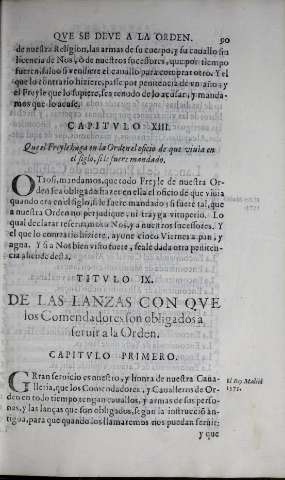 QVE SE DEVE A LA ORDEN. 90
de nuestra Religion, las armas de su cuerpo, y su cauallo sin
licencia de Nos, ò de nuestros successores, que por tiempo
fueren, saluo si vendiere el cauallo para comprar otro. Y el
que lo contrario hiziere, passe por penitencia de vn año; y
el Freyle que lo supiere, sea tenudo de lo acusar, y manda
mos que lo acuse.
CAPITVLO XIII.
Que el Freyle haga en la Orden el oficio de que viuia en
el siglo, si le fuere mandado.
OTrosi, mandamos, que todo Freyle de nuestra Or-
den sea obligado a hazer en ella el oficio de que viuia
quando era en el siglo, si le fuere mandado; si fuere tal, que
a nuestra Orden no perjudique, ni trayga vituperio. Lo
qual declarar reseruamos a Nos, y a nuestros successores. Y
el que lo contrario hiziere, ayune cinco Viernes a pan, y
agua. Y si a Nos bien visto fuere, seale dada otra peniten-
cia allende desta.
TITVLO IX.
DE LAS LANZAS CON QVE
los Comendadores son obligados a
seruir a la Orden.
CAPITVLO PRIMERO.
GRan seruicio es nuestro, y honra de nuestra Caua-
lleria, que los Comendadores, y Caualleros de Or-
den en todo tiempo tengan cauallos, y armas de sus perso-
nas, y las lanças que son obligados, segun la instrucció an-
tigua, para que quando los llamaremos nos puedan seruir;
y que
El Rey Madrid